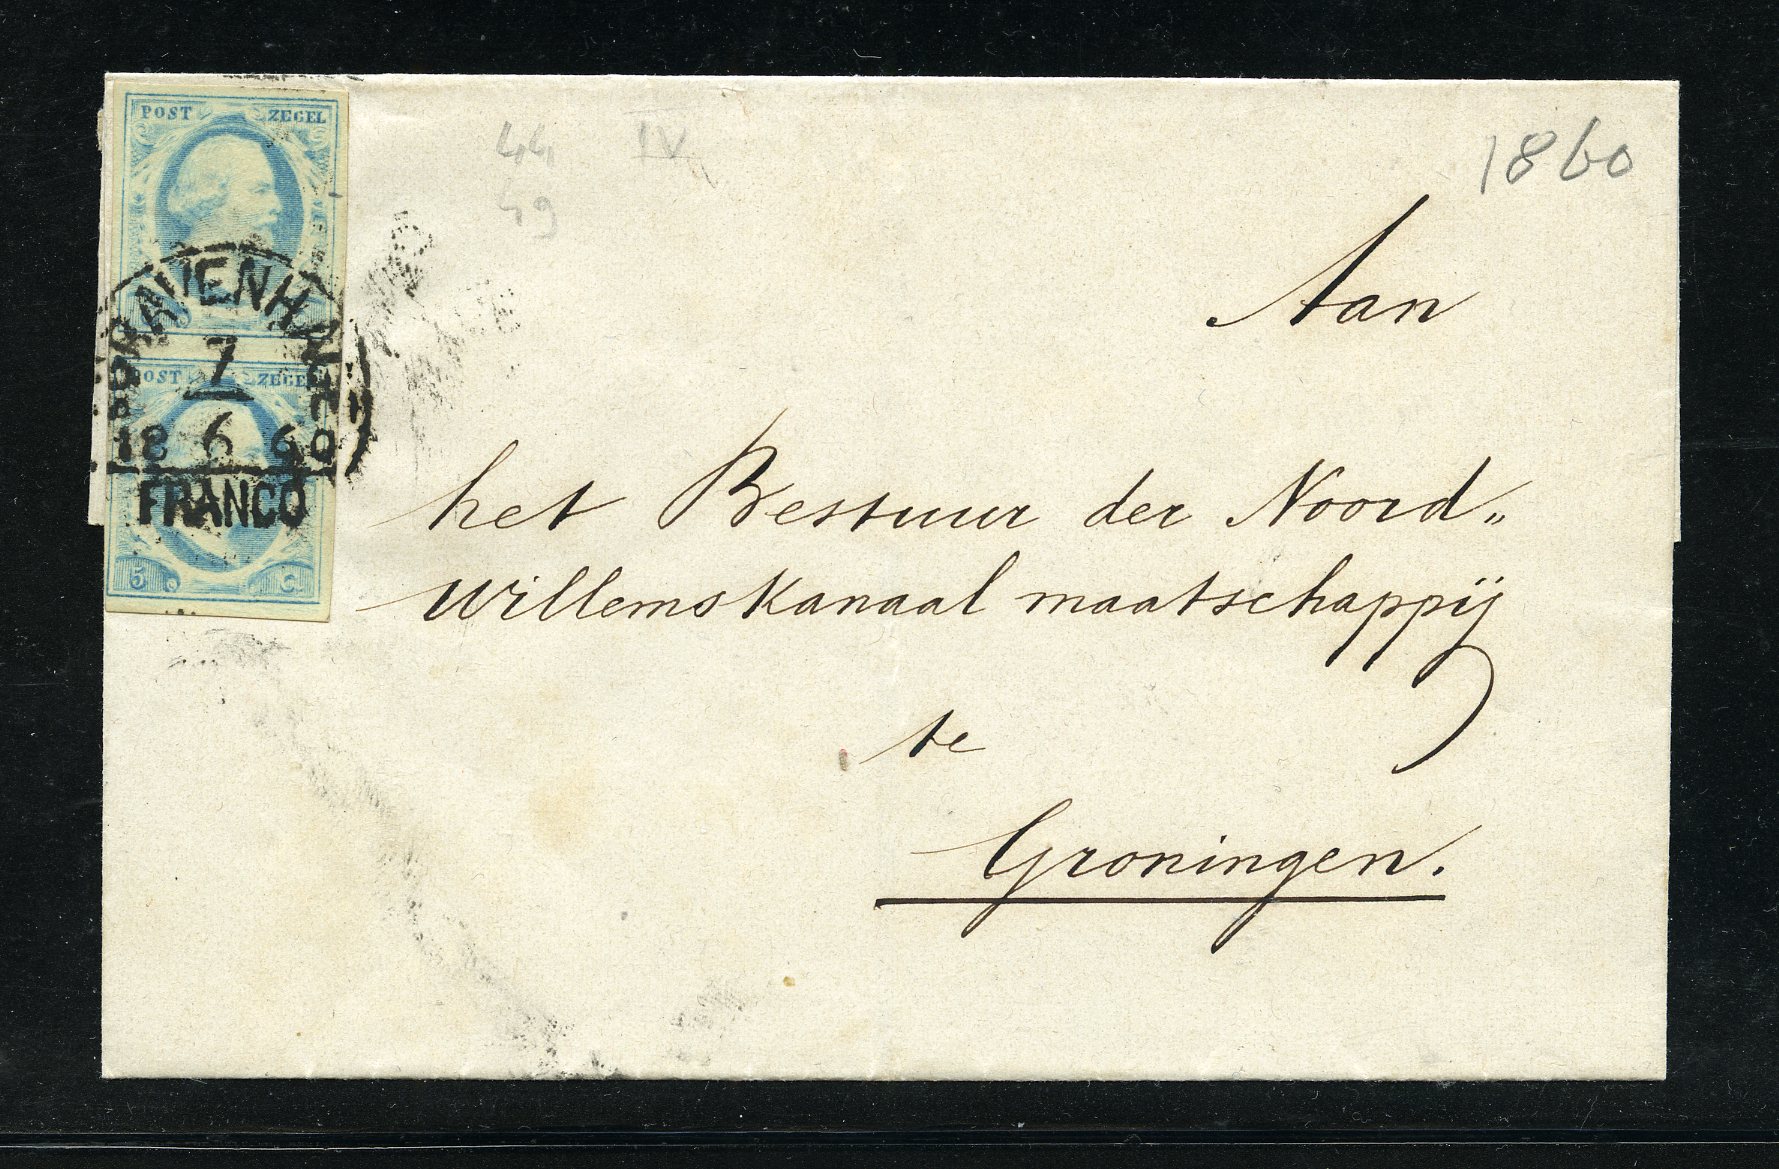 POST ZEGEL
44 IV
49
1860
'SGRAVENHAGE
7
POST ZEGEL
18 6 60
FRANCO
5 C.
Aan
het Bestuur der Noord„
Willemskanaal maatschappij
te
Groningen.